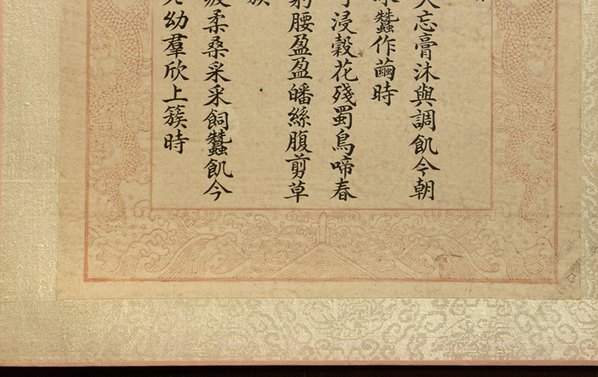 人忘膏沐與調飢今朝
蠶作繭時
浸穀花殘蜀鳥啼春
腰盈盈皤絲腹剪草
柔桑采采飼蠶飢今
幼羣欣上簇時